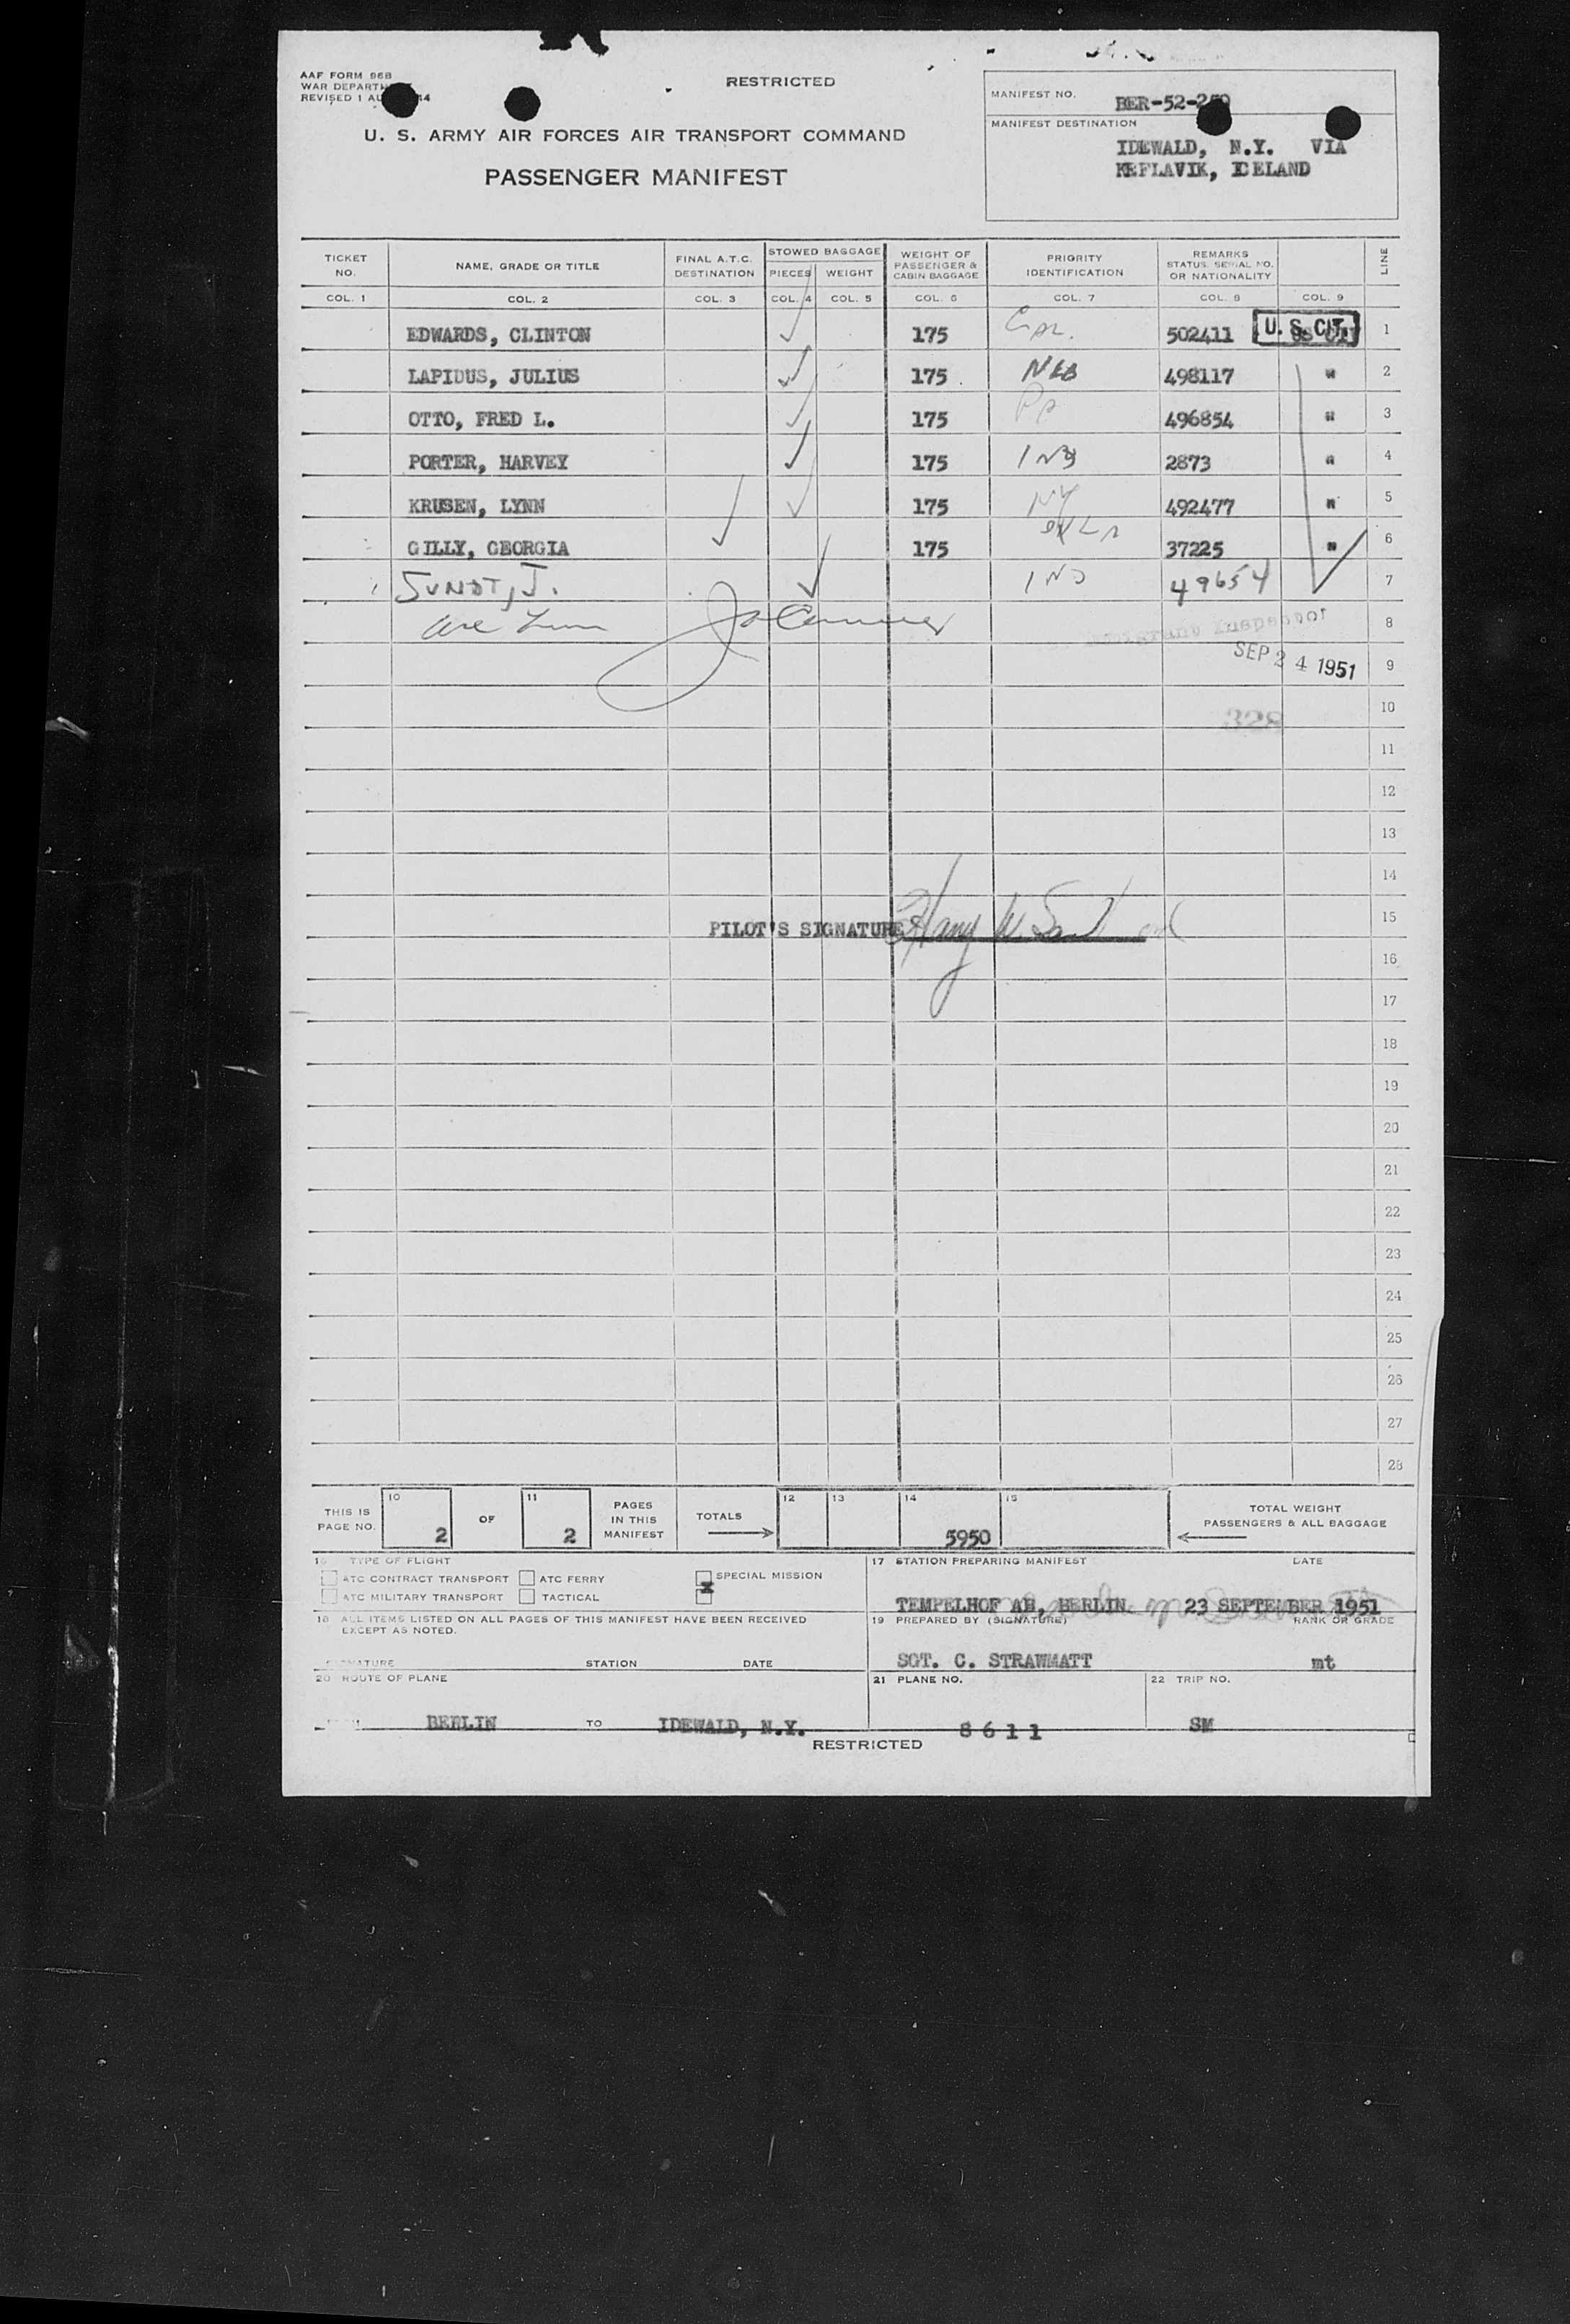 AAF FORM 96B
WAR DEPARTM
REVISED 1 AU 44
RESTRICTED
U. S. ARMY AIR FORCES AIR TRANSPORT COMMAND
PASSENGER MANIFEST
MANIFEST NO. BER-52-2
MANIFEST DESTINATION
IDEWALD, N.Y. VIA
KEFLAVIK, ICELAND
TICKET NO. NAME, GRADE OR TITLE FINAL A.T.C. DESTINATION STOWED BAGGAGE PIECES WEIGHT WEIGHT OF PASSENGER & CABIN BAGGAGE PRIORITY IDENTIFICATION REMARKS STATUS, SERIAL NO. OR NATIONALITY LINE
COL. 1 COL. 2 COL. 3 COL. 4 COL. 5 COL. 6 COL. 7 COL. 8 COL. 9
EDWARDS, CLINTON 175 502411 U. S. CIT. 1
LAPIDUS, JULIUS 175 NEB 498117 " 2
OTTO, FRED L. 175 Pa 496854 " 3
PORTER, HARVEY 175 IND 2873 " 4
KRUSEN, LYNN 175 NY 492477 " 5
GILLY, GEORGIA 175 OKLA 37225 " 6
SUNDT, J. IND 49654 7
8
Immigrant Inspector
SEP 24 1951 9
328 10
11
12
13
14
PILOT'S SIGNATURE Harry W. 15
16
17
18
19
20
21
22
23
24
25
26
27
28
THIS IS PAGE NO. 10 2 OF 11 2 PAGES IN THIS MANIFEST TOTALS 12 13 14 5950 15 TOTAL WEIGHT PASSENGERS & ALL BAGGAGE
16 TYPE OF FLIGHT
ATC CONTRACT TRANSPORT ATC FERRY SPECIAL MISSION
ATC MILITARY TRANSPORT TACTICAL X
17 STATION PREPARING MANIFEST DATE
TEMPELHOF AB, BERLIN 23 SEPTEMBER 1951
18 ALL ITEMS LISTED ON ALL PAGES OF THIS MANIFEST HAVE BEEN RECEIVED
EXCEPT AS NOTED.
SIGNATURE STATION DATE
19 PREPARED BY (SIGNATURE) RANK OR GRADE
SGT. C. STRAWMATT mt
20 ROUTE OF PLANE
BERLIN TO IDEWALD, N.Y.
21 PLANE NO.
8611
22 TRIP NO.
SM
RESTRICTED